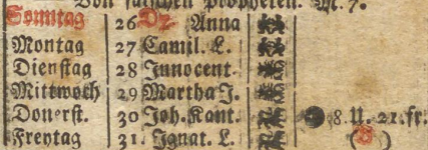 Von falschen Propheten. M. 7.
Sonntag 26 Dz Anna
Montag 27 Camil. L.
Dienstag 28 Innocent.
Mittwoch 29 Martha J.
Donerst. 30 Joh. Kant. 8. U. 21. fr.
Freytag 31. Ignat. L.